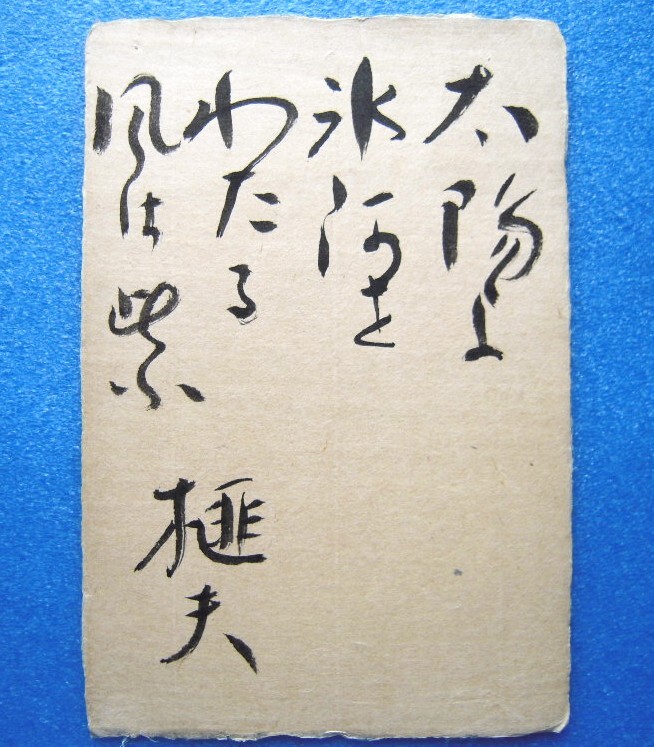 太陽よ
氷河を
わたる
風は紫
榧夫